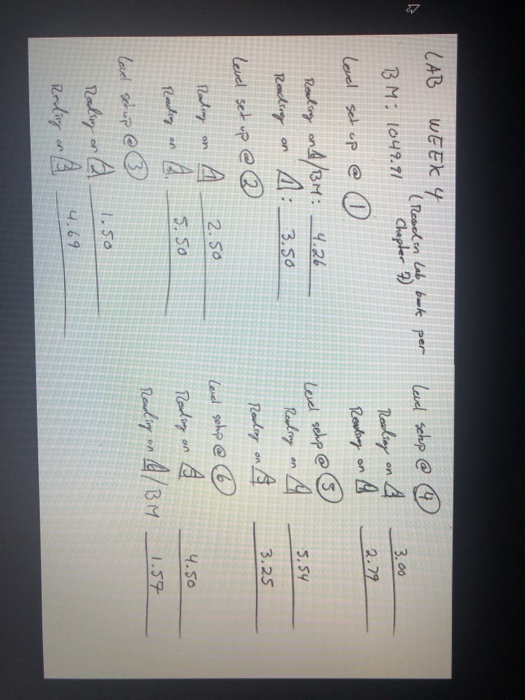 LAB WEEK 4
(Read in lab book per
Chapter 7)
BM: 1049.91
Level set up @ 1
Reading on /BM: 4.26
Reading on 1: 3.50
Level set up @ 2
Reading on 1 2.50
Reading on 5.50
Level setup @ 3
Reading on 2 1.50
Reading on 3 4.69
Level setup @ 4
Reading on 3.00
Reading on 2.79
Level setup @ 5
Reading on 4 5.54
Reading on 5 3.25
Level setup @ 6
Reading on 5 4.50
Reading on /BM 1.57